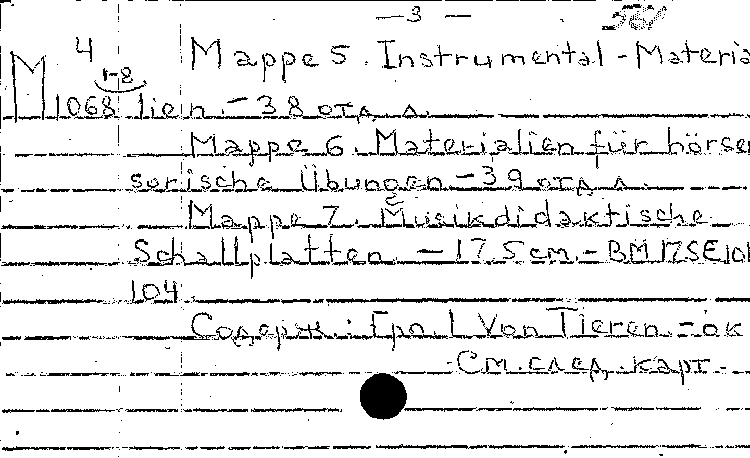 — 3 —
M 4 Mappe 5. Instrumental-Materia
1-8
1068 lien. - 38 отд. л.
Mappe 6. Materialien für hörsen
sorische Übungen - 39 отд. л.
Mappe 7. Musikdidaktische
Schallplatten. - 17,5 cm. - BM 17SE101
104.
Содерж.: Гро. 1 Von Tieren. - ок
- См. след. карт. -